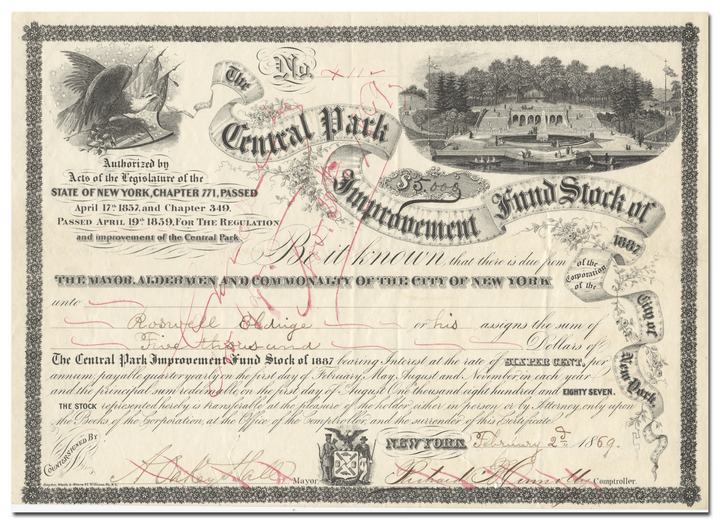 The
No.
Central Park
Improvement
$5.000
Fund Stock of
1887
of the
Corporation
of the
City of
New York.
Authorized by
Acts of the Legislature of the
STATE OF NEW YORK, CHAPTER 771, PASSED
April 17th 1857, and Chapter 349.
PASSED APRIL 19th 1859, FOR THE REGULATION
and improvement of the Central Park
Be it known, that there is due from
THE MAYOR, ALDERMEN AND COMMONALTY OF THE CITY OF NEW YORK
unto
Roswell Eldridge or his assigns the sum of
Five thousand Dollars of
The Central Park Improvement Fund Stock of 1887 bearing Interest at the rate of SIX PER CENT, per
annum, payable quarter yearly on the first day of February, May, August and November in each year
and the principal sum redeemable on the first day of August One thousand eight hundred and EIGHTY SEVEN.
THE STOCK represented hereby is transferable at the pleasure of the holder either in person or by Attorney, only upon
the Books of the Corporation, at the Office of the Comptroller, and the surrender of this Certificate.
COUNTERSIGNED BY
NEW YORK, February 2d 1869.
A. Oakey Hall Mayor
Comptroller.